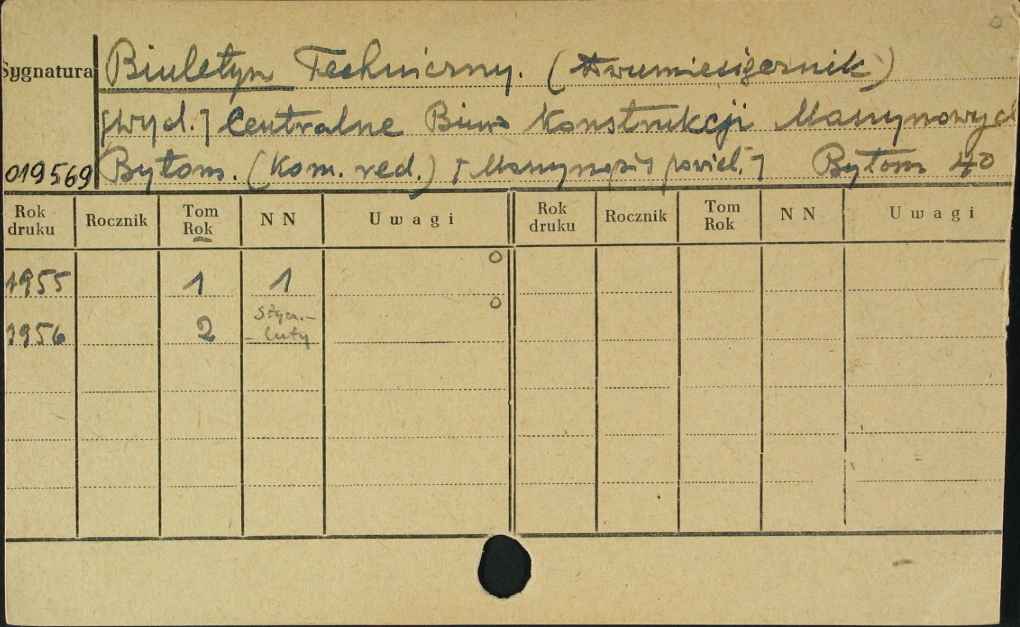 Sygnatura Biuletyn Techniczny. (Dwumiesięcznik)
[Wyd.] Centralne Biuro Konstrukcji Maszynowych
019569 Bytom. (Kom. red.) [Maszynopis powiel.] Bytom 40
Rok druku Rocznik Tom Rok NN Uwagi Rok druku Rocznik Tom Rok NN Uwagi
1955 1 1
1956 2 Stycz.-
-luty